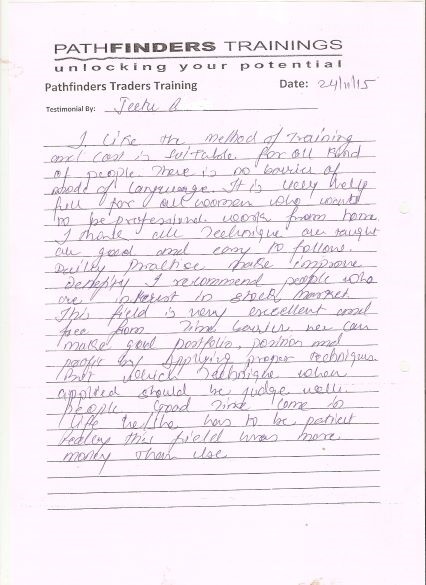 PATHFINDERS TRAININGS
unlocking your potential
Pathfinders Traders Training
Date: 24/11/15
Testimonial By: Jeetu A
I like the method of Training
and cost is suitable for all kind
of people. There is no barrier of
mode of language. It is very help
full for all women who wants
to be professional work from home.
I think all Technique are taught
are good and easy to follow.
Daily Practice make improve
I recommend people who
are interest in stock market.
This field is very excellent and
free from Time barrier we can
make good portfolio, position and
profit by applying proper technique.
But which Technique when
applied should be judge well.
people good time come in
life he/she has to be patient
this field more
money than use